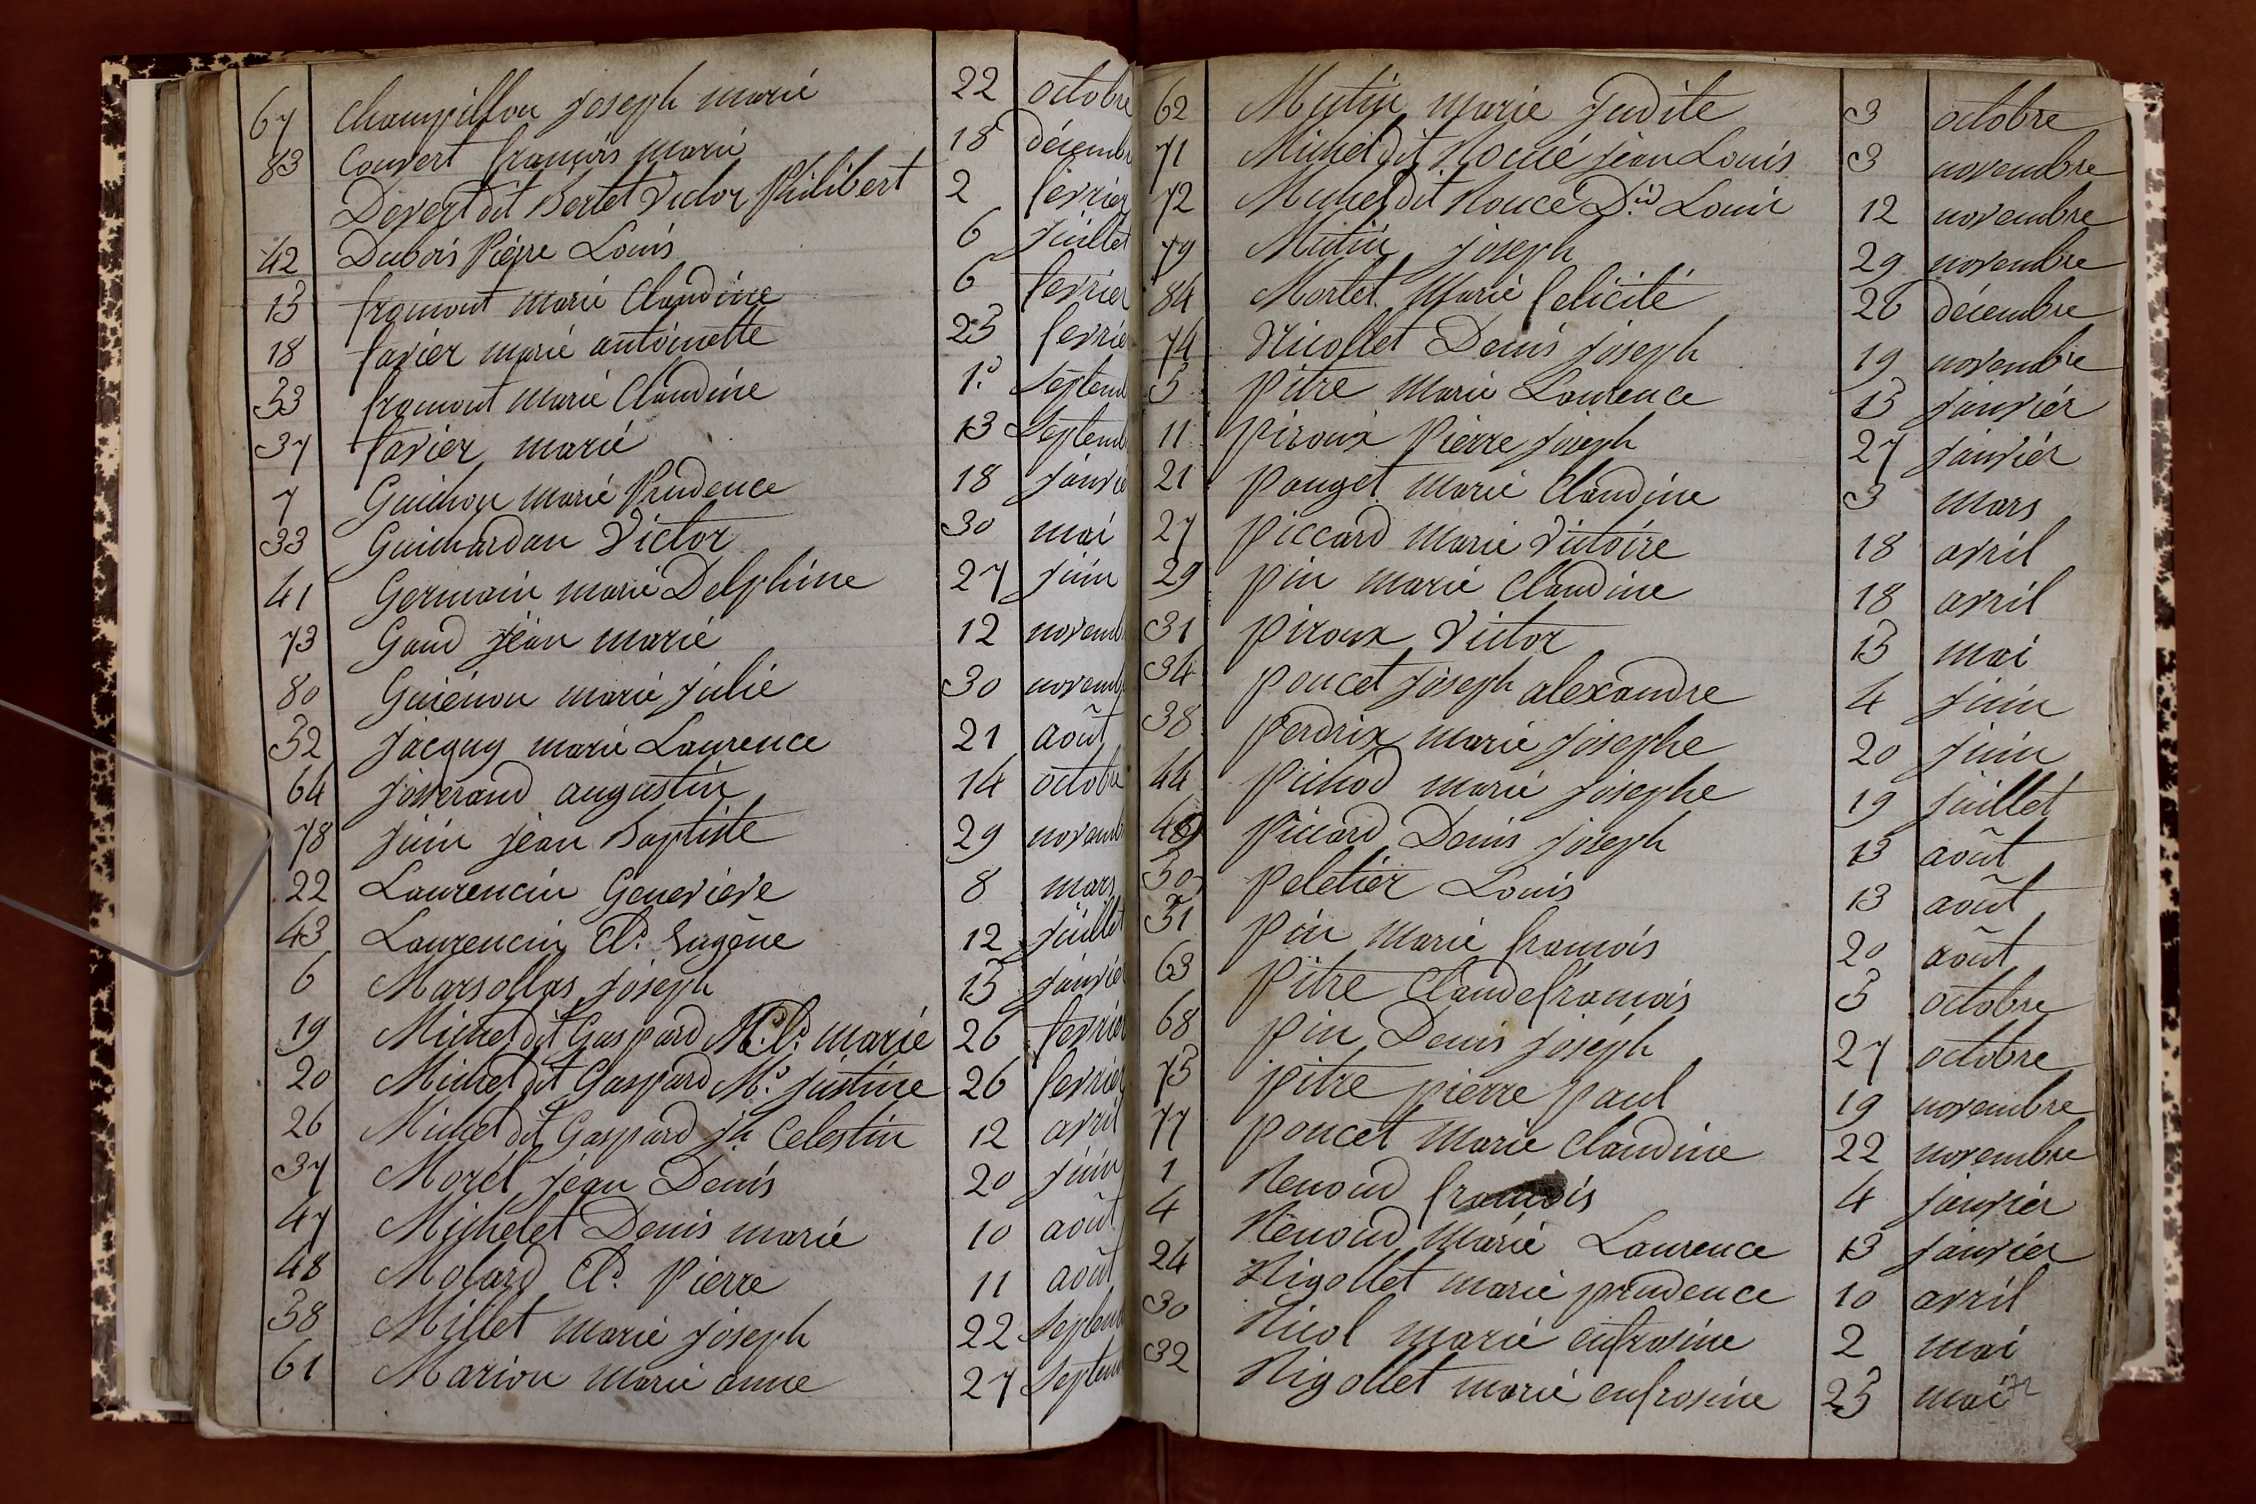 67 Champillou joseph marie 22 octobre
83 Couvert francois marie 18 décembr
Devert dit Bertet Victor Philibert 2 fevrier
42 Dubois Pierre Louis 6 juillet
13 fromont marie Claudine 6 fevrier
18 favier marie antoinette 25 fevrie
53 fromont marie Claudine 1er Septemb
57 favier marie 13 Septemb
7 Guichon marie Prudence 18 janvie
33 Guichardan Victor 30 mai
41 Germain marie Delphine 27 juin
73 Gaud jean marie 12 novemb
80 Guienon marie julie 30 novemb
52 jacquy marie Laurence 21 août
64 josserand augustin 14 octobre
78 juin jean Baptiste 29 novemb
22 Laurencin Genevieve 8 mars
43 Laurencin Cl. Eugêne 12 juillet
6 Marsollas joseph 15 janvier
19 Michel dit Gaspard M. Cl. marie 26 fevrier
20 Michel dit Gaspard M. justine 26 fevrier
26 Michel dit Gaspard jh Celestin 12 avril
37 Morél jean Denis 20 juin
47 Michelet Denis marie 10 août
48 Molard Cl. Pierre 11 août
58 Millet marie joseph 22 Septemb
61 Marion marie anne 27 Septem
62 Mutin marie Judite 3 octobre
71 Michel dit Noucé jean Louis 3 novembre
72 Michel dit Noucé Dis Louis 12 novembre
79 Mutin joseph 29 novembre
84 Mortet Marie felicité 26 décembre
74 Nicollet Denis joseph 19 novembre
5 pitre marie Laurence 15 janvier
11 piroux Pierre joseph 27 janvier
21 pouget marie Claudine 3 mars
27 piccard marie Victoire 18 avril
29 pin marie Claudine 18 avril
31 piroux Victor 15 mai
34 poncet joseph alexandre 4 juin
38 perdrix marie josephe 20 juin
44 pichod marie josephe 19 juillet
49 piccard Denis joseph 13 août
50 peletier Louis 13 août
51 pin marie francois 20 août
63 pitre Claude francois 5 octobre
68 pin Denis joseph 27 octobre
75 pitre pierre paul 19 novembre
77 poncet marie Claudine 22 novembre
1 Renoud francois 4 janvier
4 Renoud marie Laurence 13 janvier
24 Rigollet marie prudence 10 avril
30 Ricol marie eufrosine 2 mai
32 Rigollet marie eufrosine 25 mai